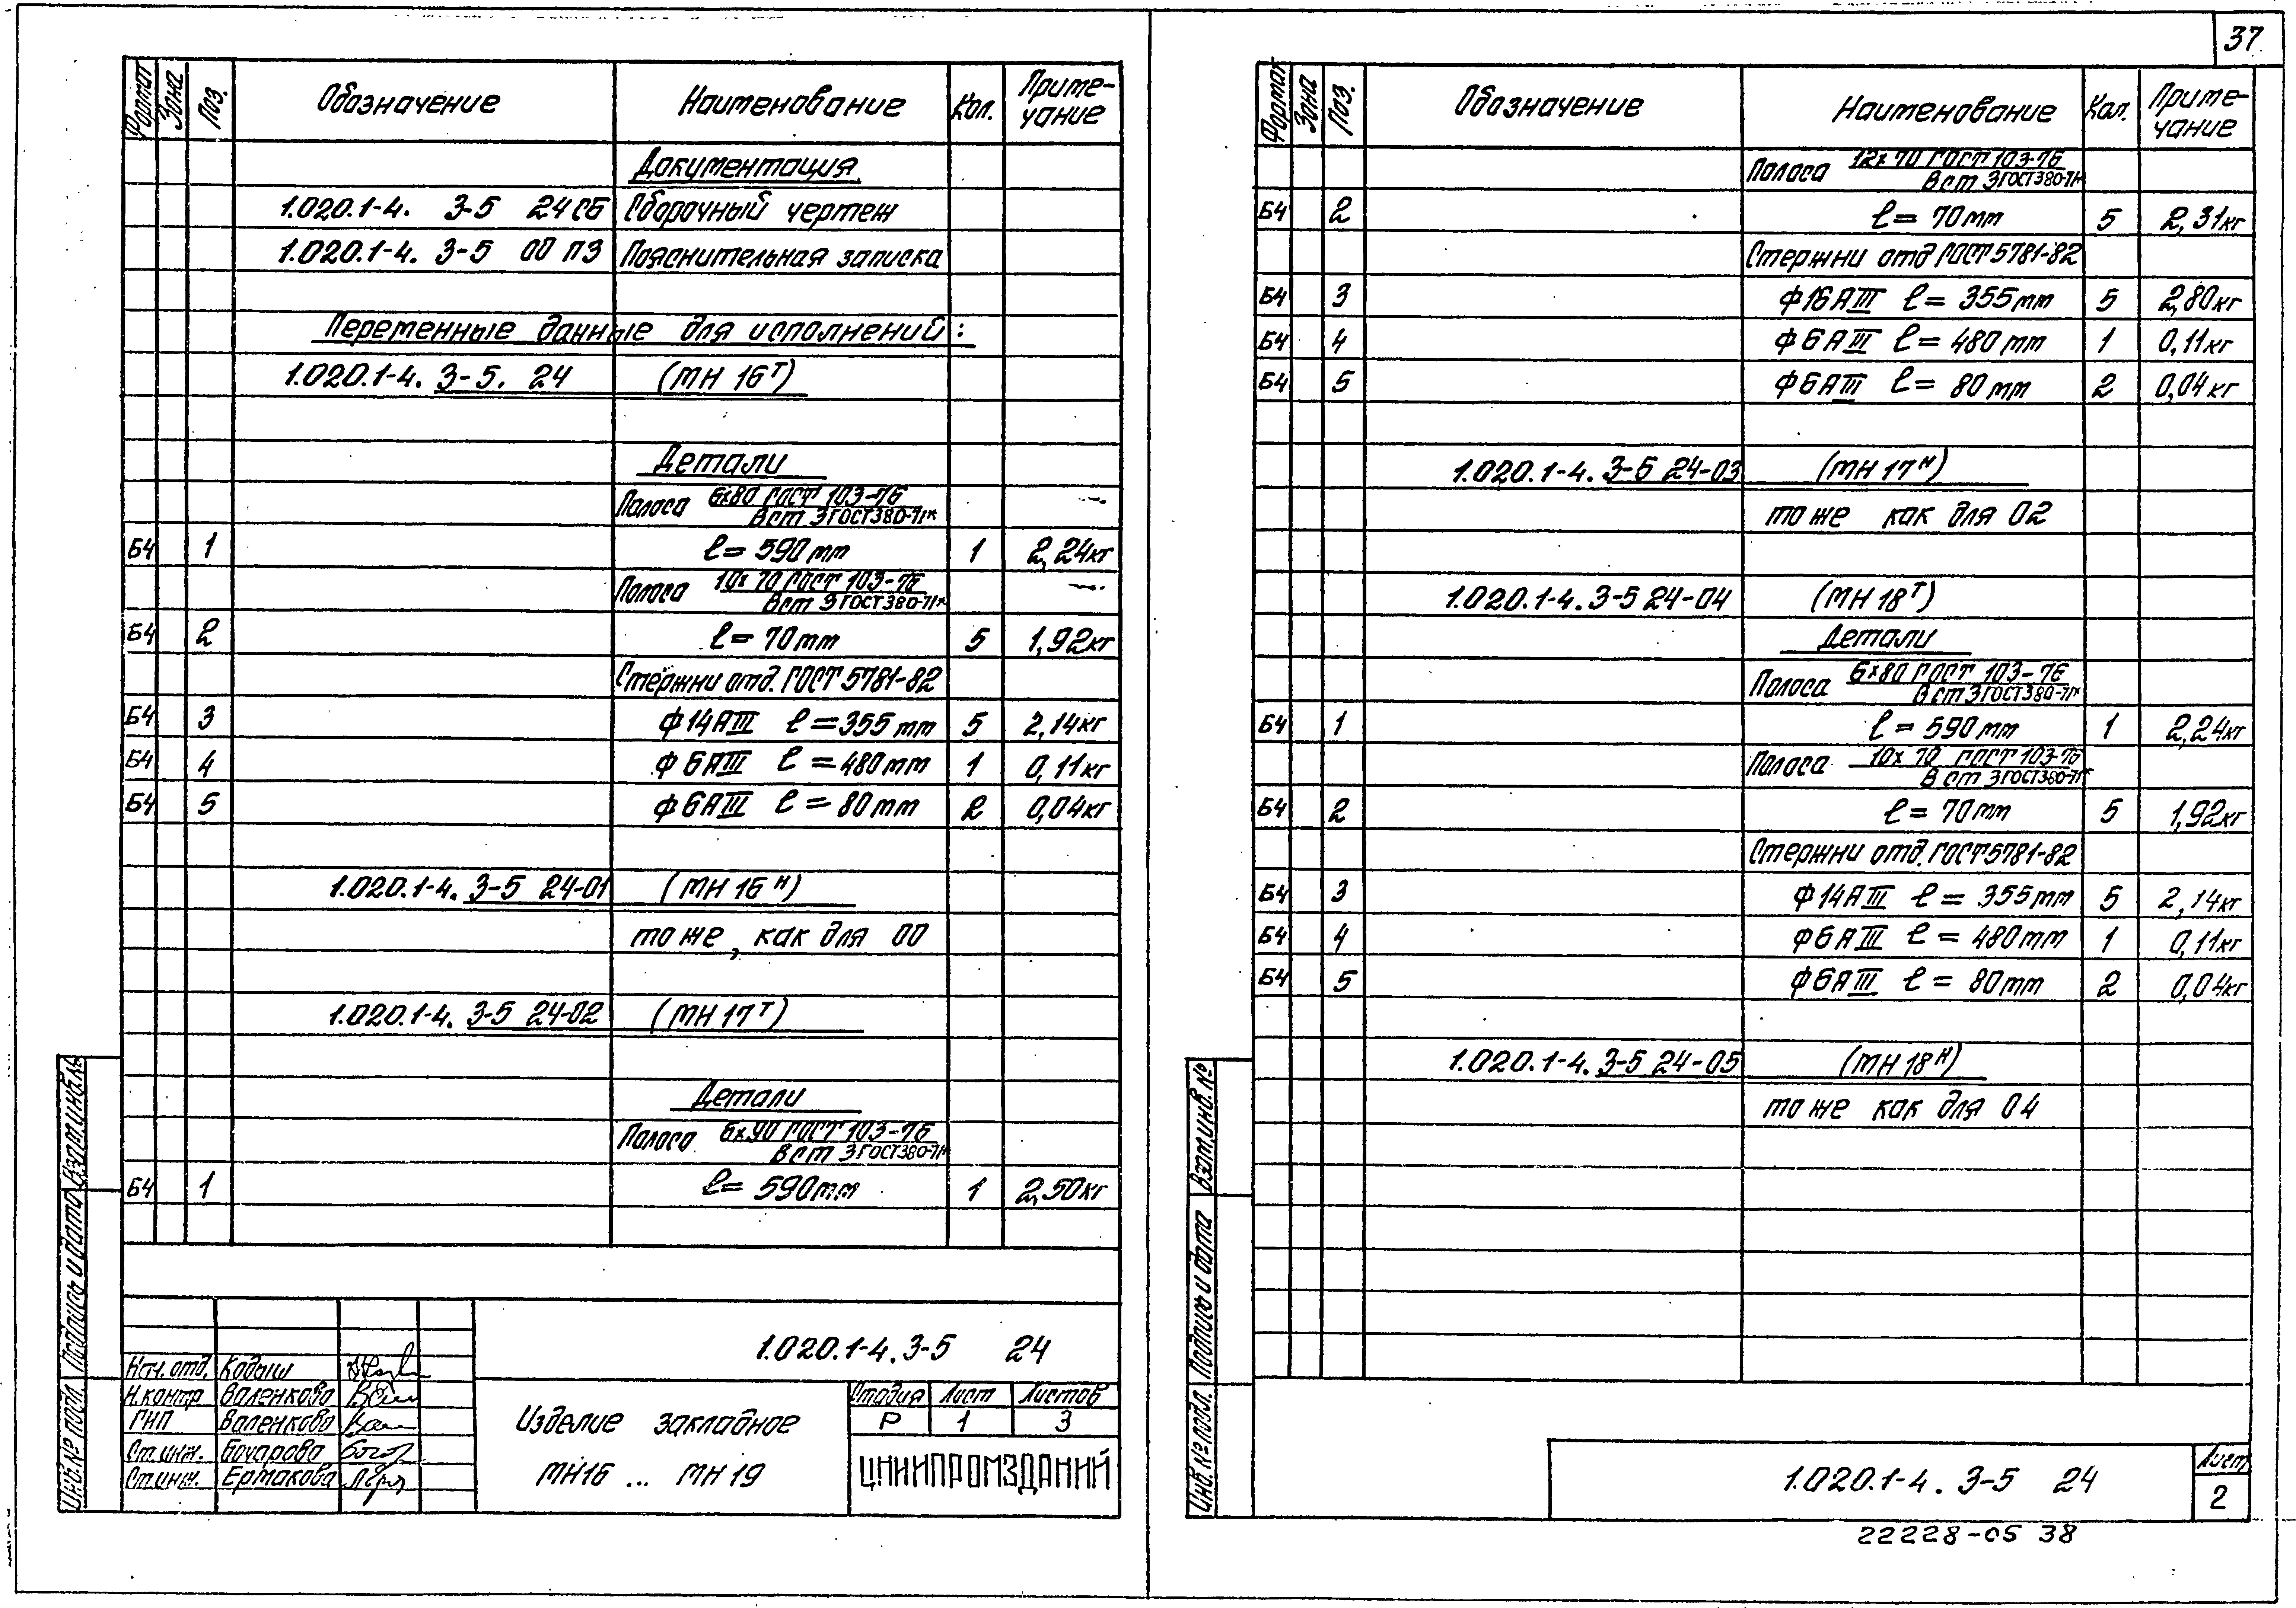 37
Формат Зона Поз. Обозначение Наименование Кол. Приме-
чание
Документация
1.020.1-4. 3-5 24 СБ Сборочный чертеж
1.020.1-4. 3-5 00 ПЗ Пояснительная записка
Переменные данные для исполнений:
1.020.1-4. 3-5. 24 (МН 16ᵀ)
Детали
Полоса 6х80 ГОСТ 103-76
Вст 3 ГОСТ 380-71*
Б4 1 ℓ= 590мм 1 2,24кг
Полоса 10х70 ГОСТ 103-76
Вст 3 ГОСТ 380-71*
Б4 2 ℓ= 70мм 5 1,92кг
Стержни отд. ГОСТ 5781-82
Б4 3 Ф14АIII ℓ=355мм 5 2,14кг
Б4 4 Ф6АIII ℓ=480мм 1 0,11кг
Б4 5 Ф6АIII ℓ=80мм 2 0,04кг
1.020.1-4. 3-5 24-01 (МН 16ᴴ)
то же, как для 00
1.020.1-4. 3-5 24-02 (МН 17ᵀ)
Детали
Полоса 6х90 ГОСТ 103-76
Вст 3 ГОСТ 380-71*
Б4 1 ℓ= 590мм 1 2,50кг
Взам.инв.№
Подпись и дата
Инв.№ подл.
1.020.1-4. 3-5 24
Нач.отд. Кодыш
Н.контр Валенкова
ГИП Валенкова
Ст.инж. Бочарова
Ст.инж. Ермакова
Изделие закладное
МН16 ... МН19
Стадия Лист Листов
Р 1 3
ЦНИИПРОМЗДАНИЙ
Формат Зона Поз. Обозначение Наименование Кол. Приме-
чание
Полоса 12х70 ГОСТ 103-76
Вст 3 ГОСТ 380-71*
Б4 2 ℓ= 70мм 5 2,31кг
Стержни отд ГОСТ 5781-82
Б4 3 Ф16АIII ℓ= 355мм 5 2,80кг
Б4 4 Ф6АIII ℓ= 480мм 1 0,11кг
Б4 5 Ф6АIII ℓ= 80мм 2 0,04кг
1.020.1-4. 3-5 24-03 (МН 17ᴴ)
то же как для 02
1.020.1-4. 3-5 24-04 (МН 18ᵀ)
Детали
Полоса 6х80 ГОСТ 103-76
Вст 3 ГОСТ 380-71*
Б4 1 ℓ= 590мм 1 2,24кг
Полоса 10х70 ГОСТ 103-76
Вст 3 ГОСТ 380-71*
Б4 2 ℓ= 70мм 5 1,92кг
Стержни отд. ГОСТ 5781-82
Б4 3 Ф14АIII ℓ= 355мм 5 2,14кг
Б4 4 Ф6АIII ℓ= 480мм 1 0,11кг
Б4 5 Ф6АIII ℓ= 80мм 2 0,04кг
1.020.1-4. 3-5 24-05 (МН 18ᴴ)
то же как для 04
Взам.инв.№
Подпись и дата
Инв.№ подл.
1.020.1-4. 3-5 24
Лист
2
22228-05 38